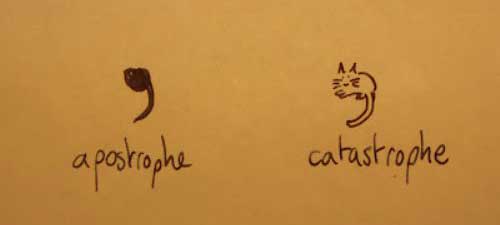 apostrophe catastrophe